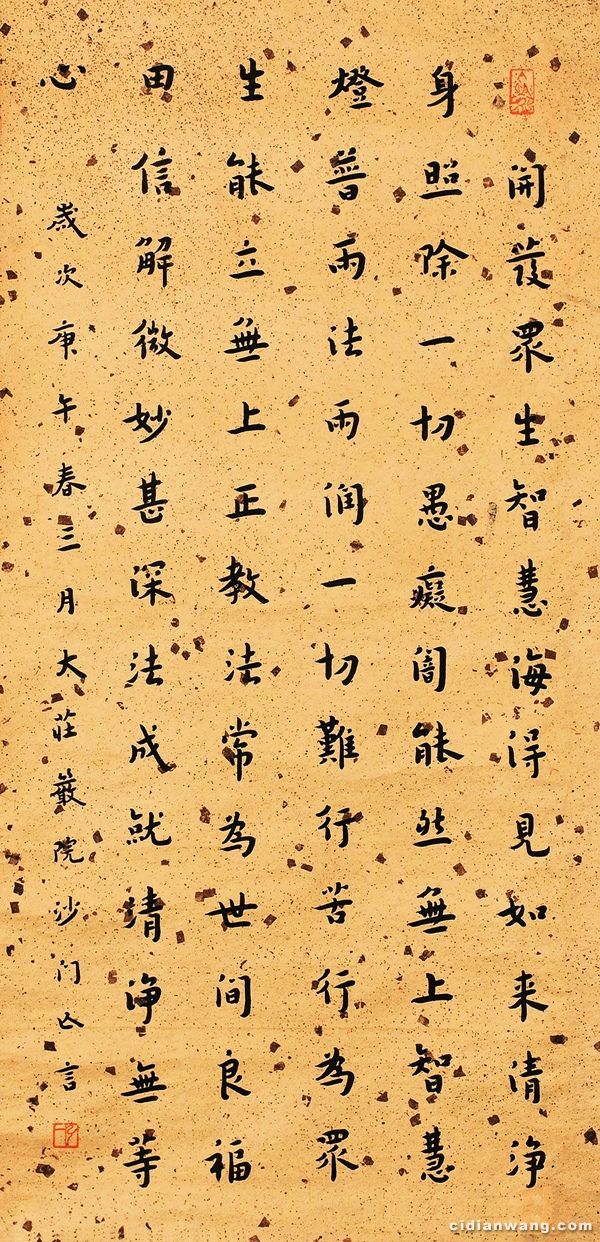 開發眾生智慧海得見如来清淨
身照除一切愚癡闇能然無上智慧
燈普雨法雨润一切難行苦行為眾
生能立無上正教法常為世间良福
田信解微妙甚深法成就清淨無等
心
歲次庚午春三月大莊嚴院沙门以言
cidianwang.com